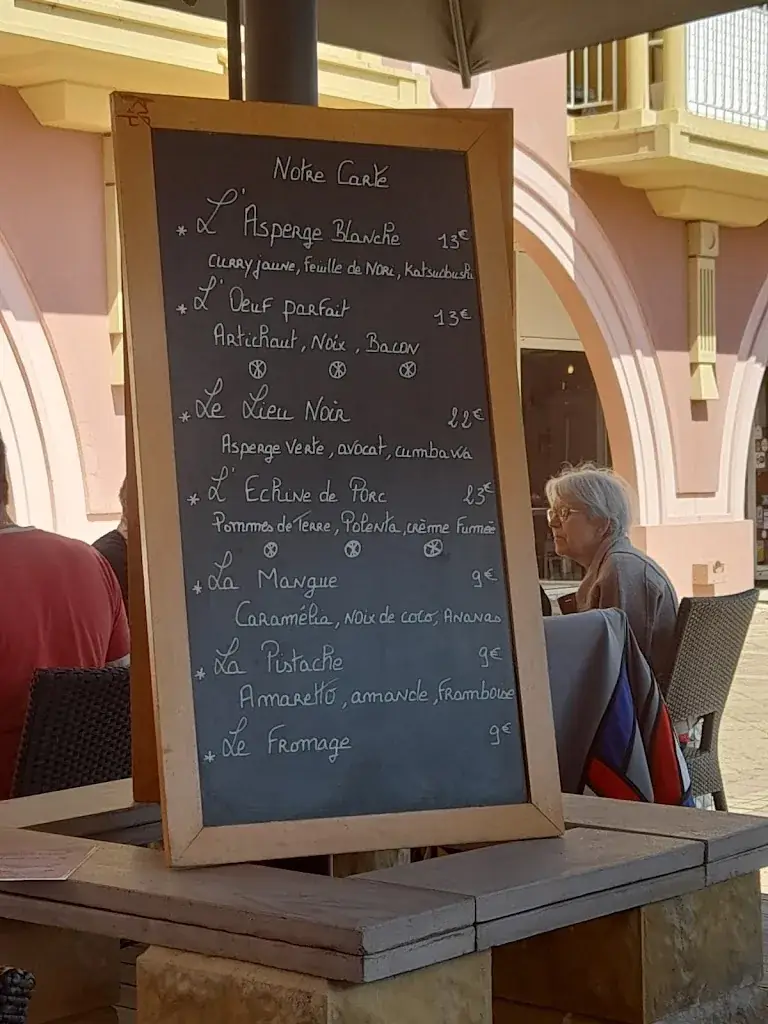 Notre Carte
* L'Asperge Blanche 13€
Curry jaune, feuille de Nori, Katsuobushi
* L'Oeuf parfait 13€
Artichaut, Noix, Bacon
* Le Lieu Noir 22€
Asperge verte, avocat, cumbawa
* L'Echine de Porc 23€
Pommes de Terre, Polenta, crème Fumée
* La Mangue 9€
Caramélia, Noix de coco, Ananas
* La Pistache 9€
Amaretto, amande, Framboise
* Le Fromage 9€